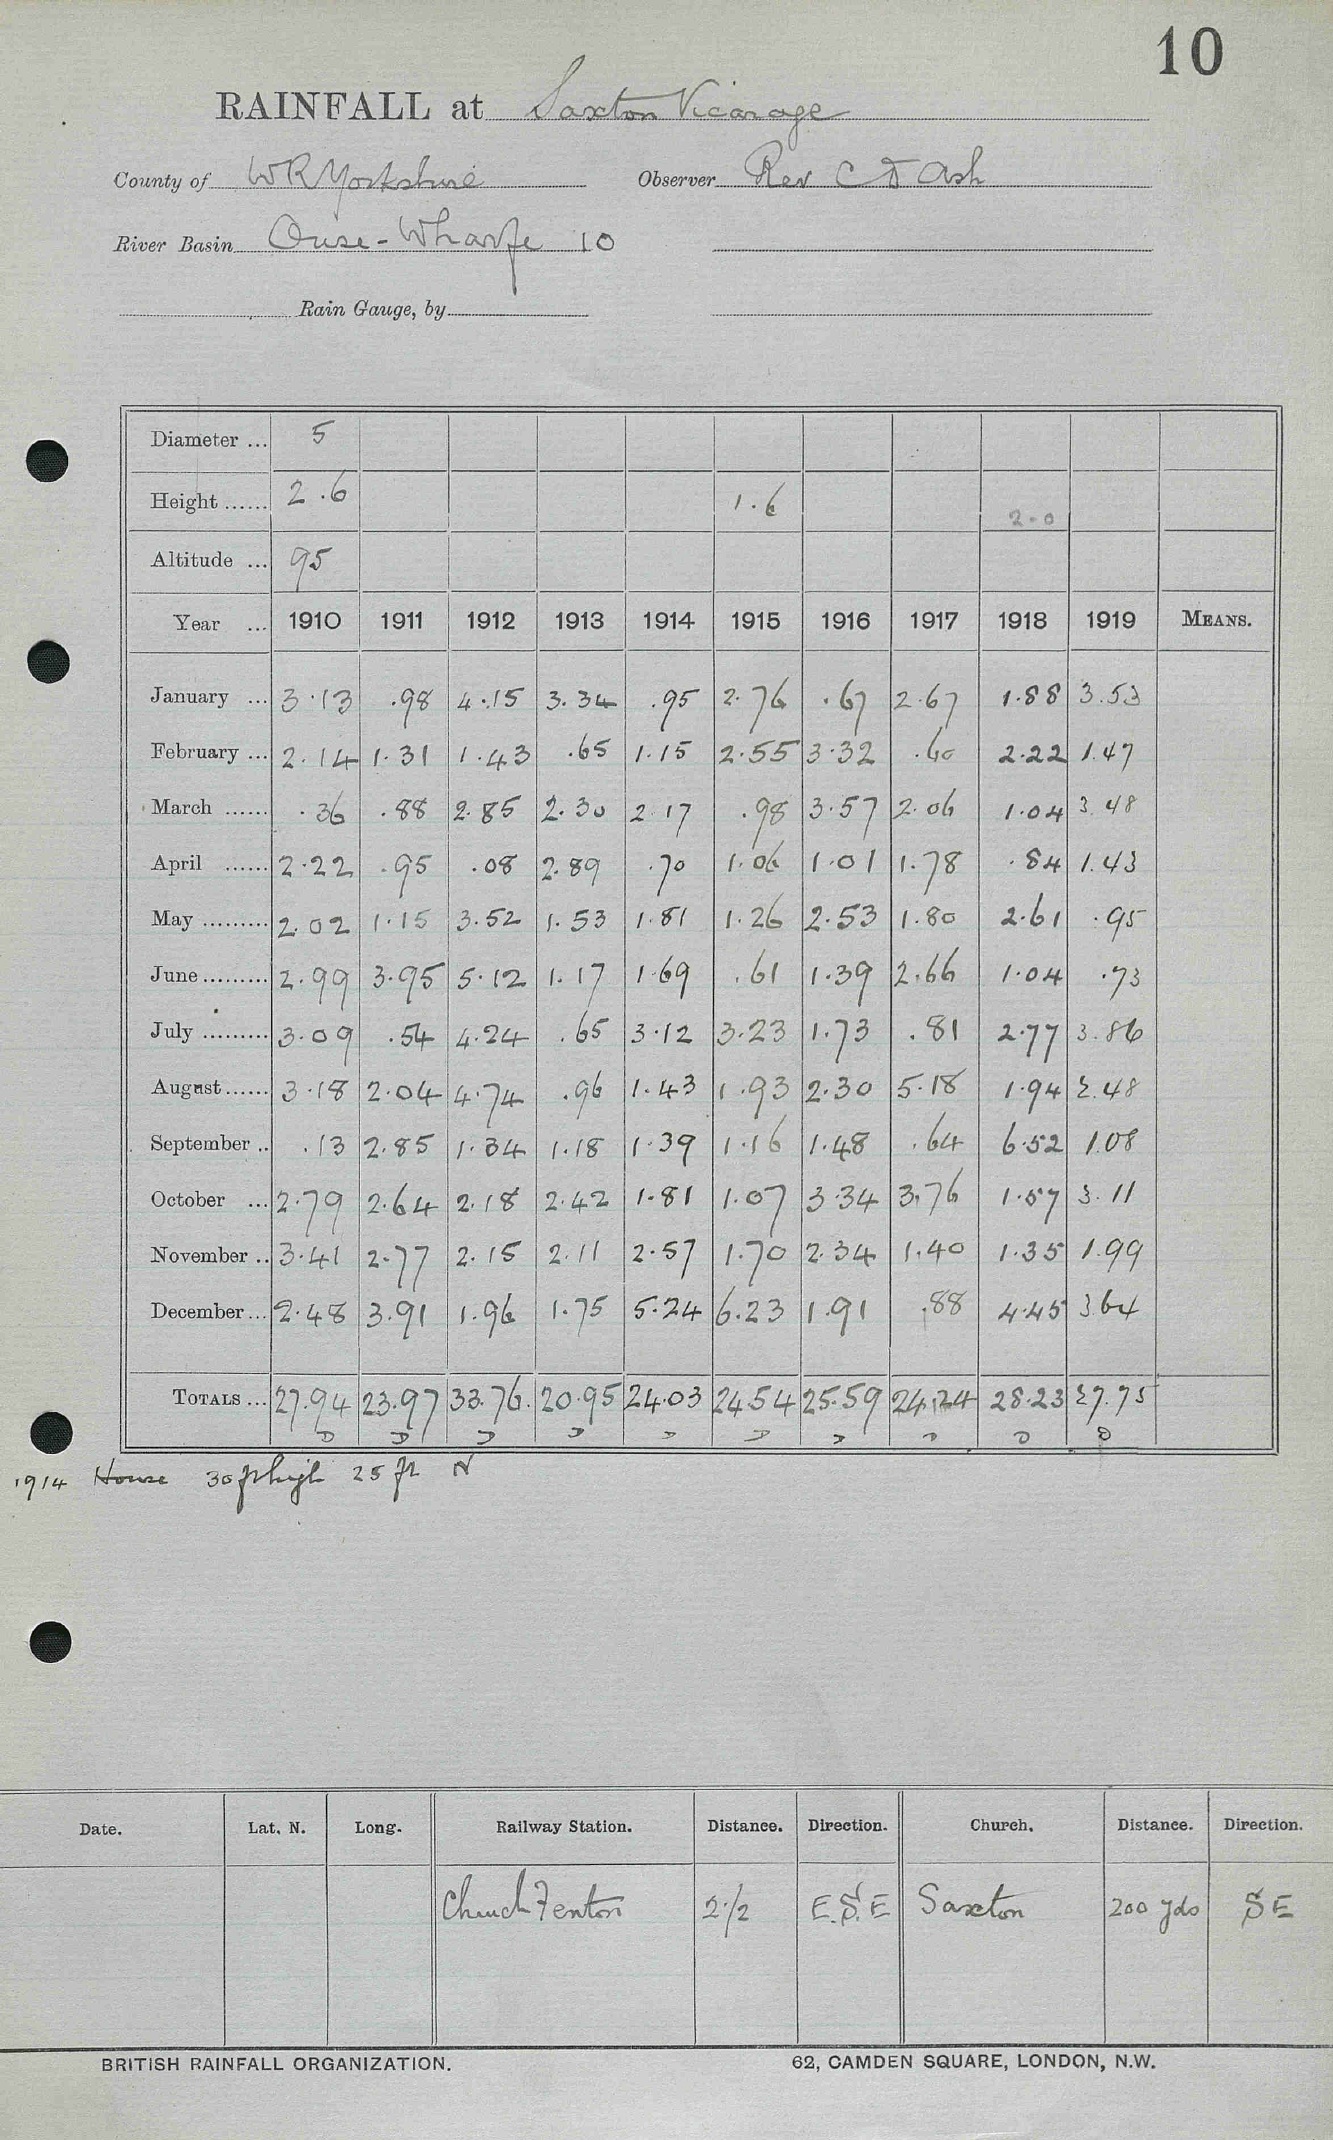 10
RAINFALL at Saxton Vicarage
County of W R Yorkshire Observer Rev C D Ash
River Basin Ouse - Wharfe 10
Rain Gauge, by
Diameter ... 5
Height ...... 2.6 1.6 2.0
Altitude ... 95
Year ... 1910 1911 1912 1913 1914 1915 1916 1917 1918 1919 MEANS.
January ... 3.13 .98 4.15 3.34 .95 2.76 .67 2.67 1.88 3.53
February ... 2.14 1.31 1.43 .65 1.15 2.55 3.32 .60 2.22 1.47
March ...... .36 .88 2.85 2.30 2.17 .98 3.57 2.06 1.04 3.48
April ...... 2.22 .95 .08 2.89 .70 1.06 1.01 1.78 .84 1.43
May ......... 2.02 1.15 3.52 1.53 1.81 1.26 2.53 1.80 2.61 .95
June ......... 2.99 3.95 5.12 1.17 1.69 .61 1.39 2.66 1.04 .73
July ......... 3.09 .54 4.24 .65 3.12 3.23 1.73 .81 2.77 3.86
August ...... 3.18 2.04 4.74 .96 1.43 1.93 2.30 5.18 1.94 2.48
September .. .13 2.85 1.34 1.18 1.39 1.16 1.48 .64 6.52 1.08
October ... 2.79 2.64 2.18 2.42 1.81 1.07 3.34 3.76 1.57 3.11
November .. 3.41 2.77 2.15 2.11 2.57 1.70 2.34 1.40 1.35 1.99
December ... 2.48 3.91 1.96 1.75 5.24 6.23 1.91 .88 4.45 3.64
TOTALS ... 27.94 23.97 33.76 20.95 24.03 24.54 25.59 24.24 28.23 27.75
D D D D D D D D D D
1914 House 30 ft high 25 ft N
Date. Lat. N. Long. Railway Station. Distance. Direction. Church. Distance. Direction.
Church Fenton 2 1/2 E.S.E Saxton 200 yds S E
BRITISH RAINFALL ORGANIZATION. 62, CAMDEN SQUARE, LONDON, N.W.